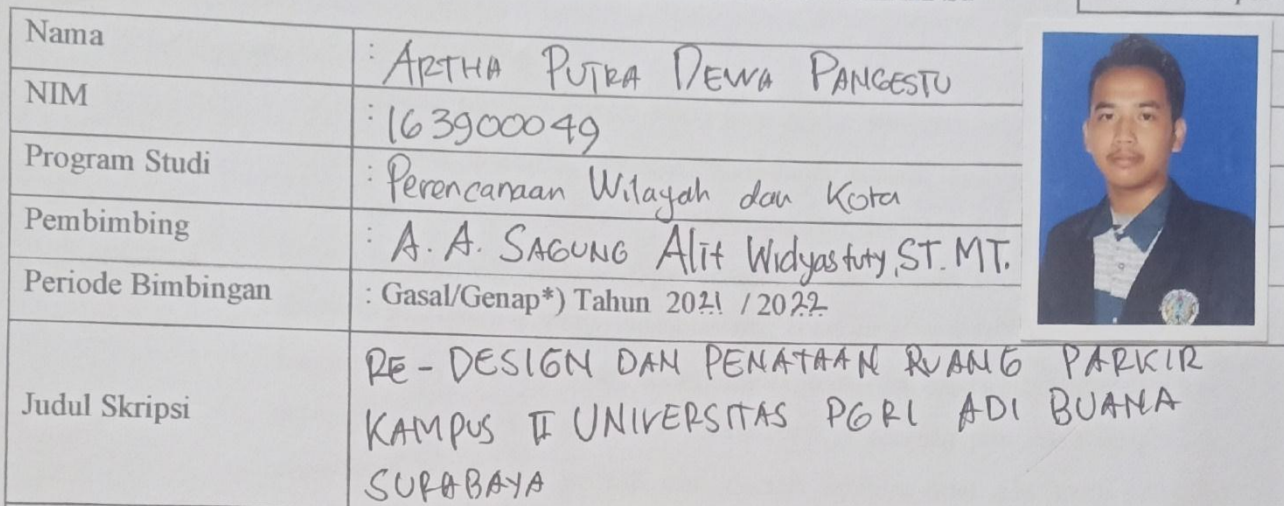 Nama : ARTHA PUTRA DEWA PANGESTU
NIM : 163900049
Program Studi : Perencanaan Wilayah dan Kota
Pembimbing : A. A. SAGUNG Alit Widyastuty, ST. MT.
Periode Bimbingan : Gasal/Genap*) Tahun 2021 / 2022
Judul Skripsi
RE - DESIGN DAN PENATAAN RUANG PARKIR
KAMPUS II UNIVERSITAS PGRI ADI BUANA
SURABAYA